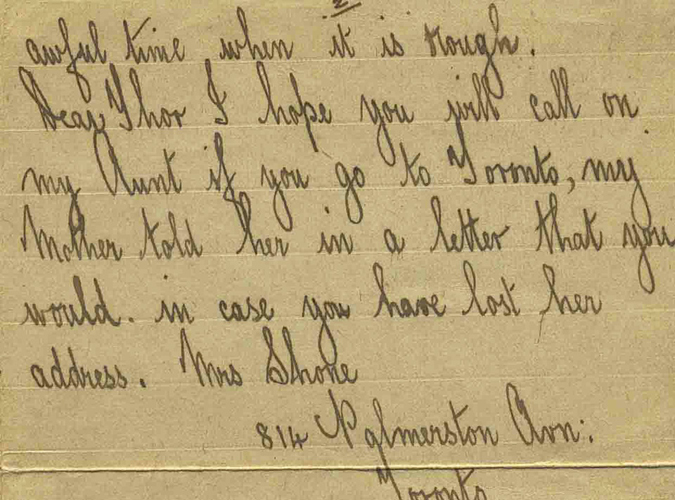 2
awful time when it is rough.
Dear Thor I hope you will call on
my Aunt if you go to Toronto, my
Mother told her in a letter that you
would. in case you have lost her
address. Mrs Shone
814 Palmerston Avn:
Toronto